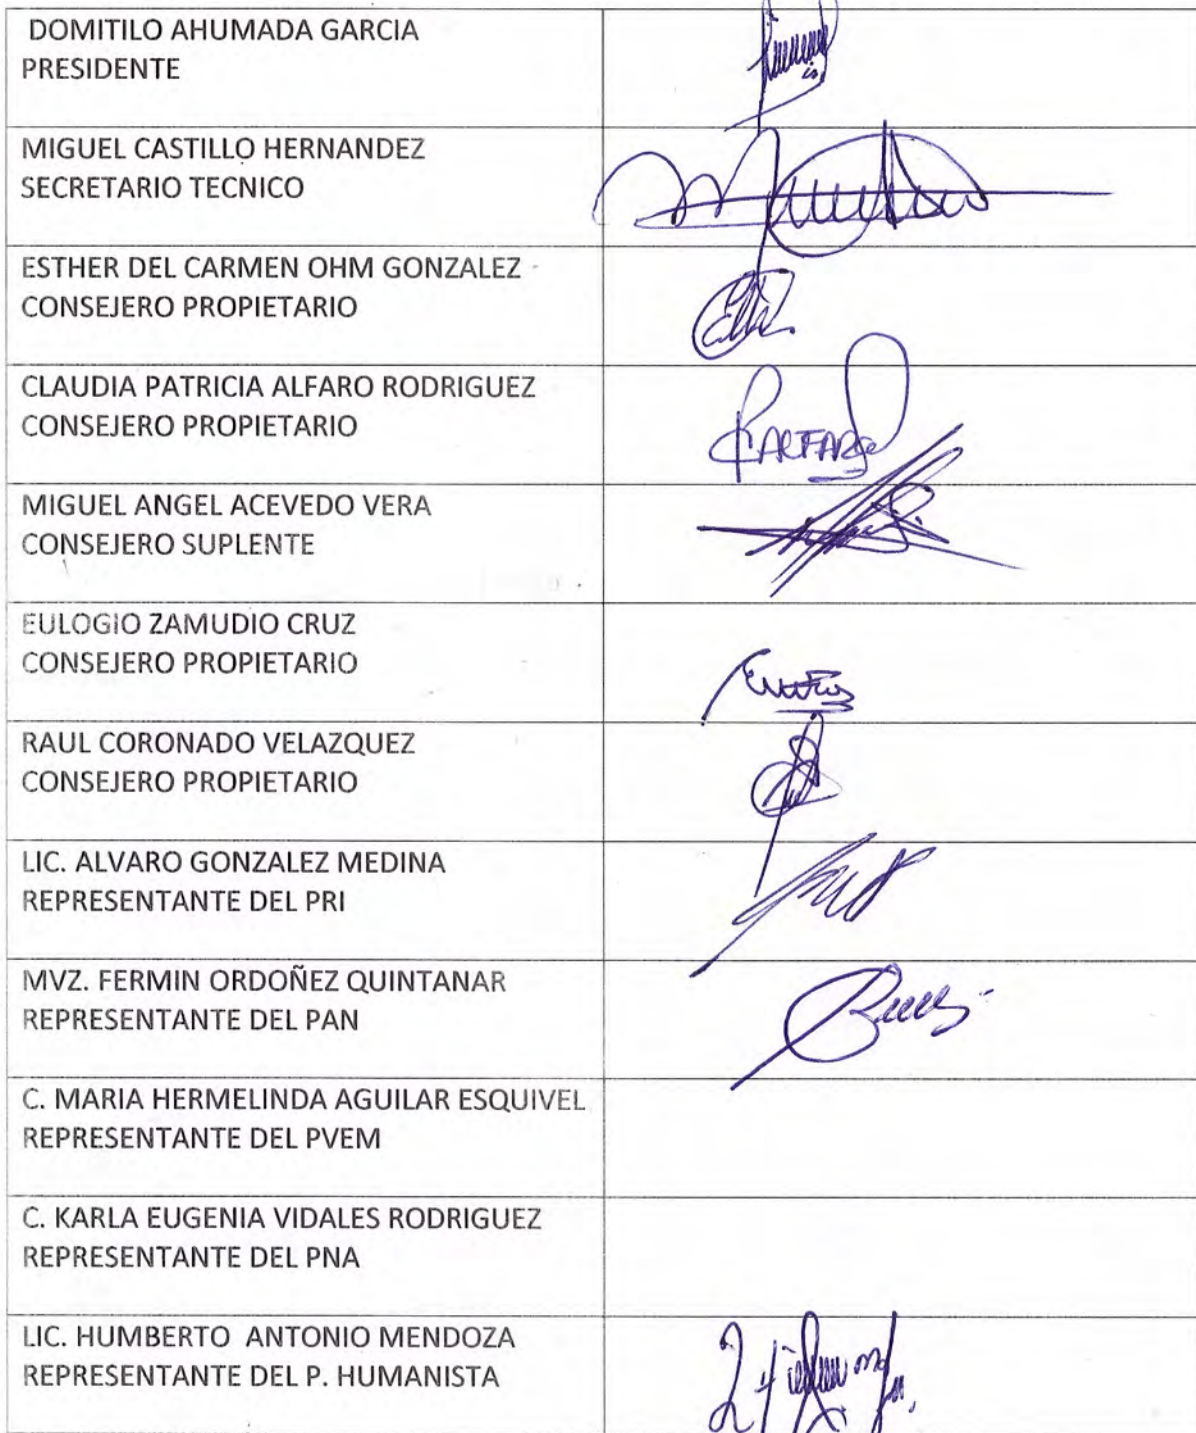 DOMITILO AHUMADA GARCIA
PRESIDENTE
MIGUEL CASTILLO HERNANDEZ
SECRETARIO TECNICO
ESTHER DEL CARMEN OHM GONZALEZ
CONSEJERO PROPIETARIO
CLAUDIA PATRICIA ALFARO RODRIGUEZ
CONSEJERO PROPIETARIO
MIGUEL ANGEL ACEVEDO VERA
CONSEJERO SUPLENTE
EULOGIO ZAMUDIO CRUZ
CONSEJERO PROPIETARIO
RAUL CORONADO VELAZQUEZ
CONSEJERO PROPIETARIO
LIC. ALVARO GONZALEZ MEDINA
REPRESENTANTE DEL PRI
MVZ. FERMIN ORDOÑEZ QUINTANAR
REPRESENTANTE DEL PAN
C. MARIA HERMELINDA AGUILAR ESQUIVEL
REPRESENTANTE DEL PVEM
C. KARLA EUGENIA VIDALES RODRIGUEZ
REPRESENTANTE DEL PNA
LIC. HUMBERTO ANTONIO MENDOZA
REPRESENTANTE DEL P. HUMANISTA